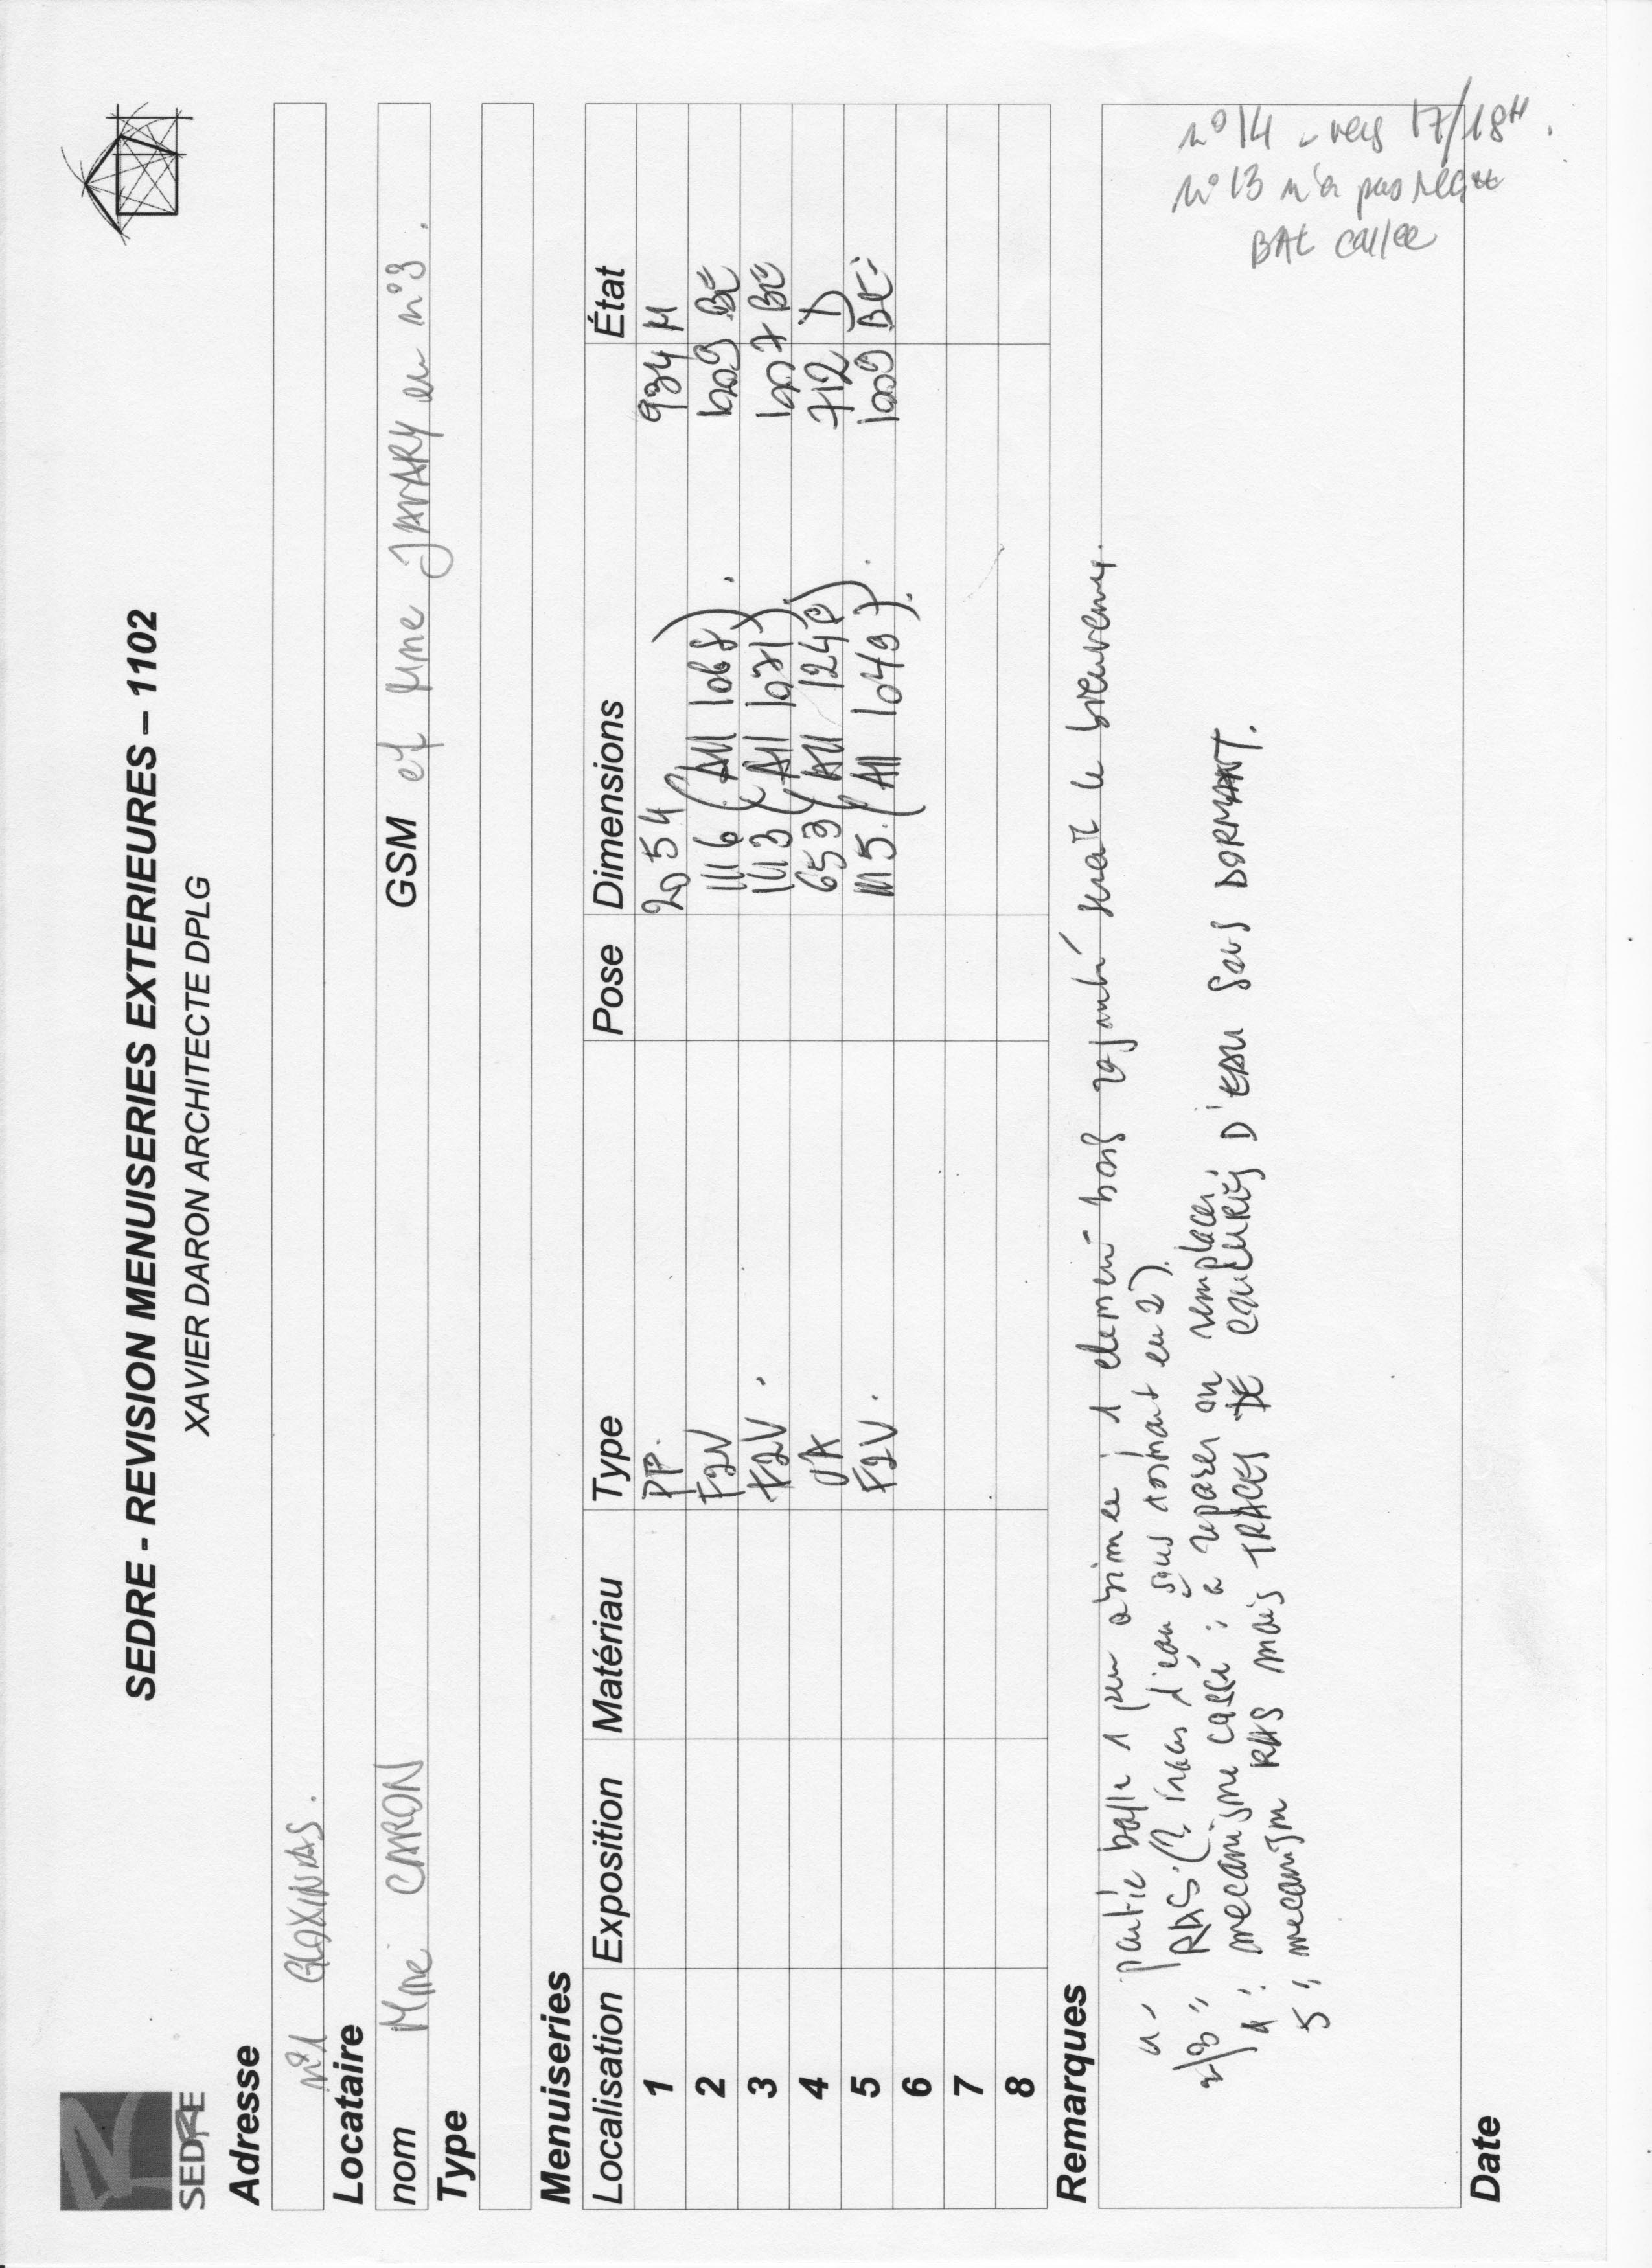 SEDRE - REVISION MENUISERIES EXTERIEURES – 1102
XAVIER DARON ARCHITECTE DPLG
SEDRE
Adresse
n°1 GLOXINIAS.
Locataire
nom Mme CARON GSM et Mme JANARY en n°3.
Type
Menuiseries
Localisation Exposition Matériau Type Pose Dimensions État
1 PP. 2054 934 M
2 F2V 1116 (All 1068). 1009 BE
3 F2V. 1113 (All 1071) 1007 BE
4 OA 653 (All 1240) 712 D
5 F2V. 1115. (All 1049). 1009 BE
6
7
8
Remarques
partie basse 1 peu abimée ; 1 element bois rajouté serait le bienvenu.
2/3 : RAS. (? traces d'eau sous dormant en 2).
4 : mecanisme cassé : a reparer ou remplacer.
5 : mecanism RAS mais TRACES DE COULURES D'EAU SOUS DORMANT.
n°14 - vers 17/18H.
n°13 n'a pas
BAL
Date